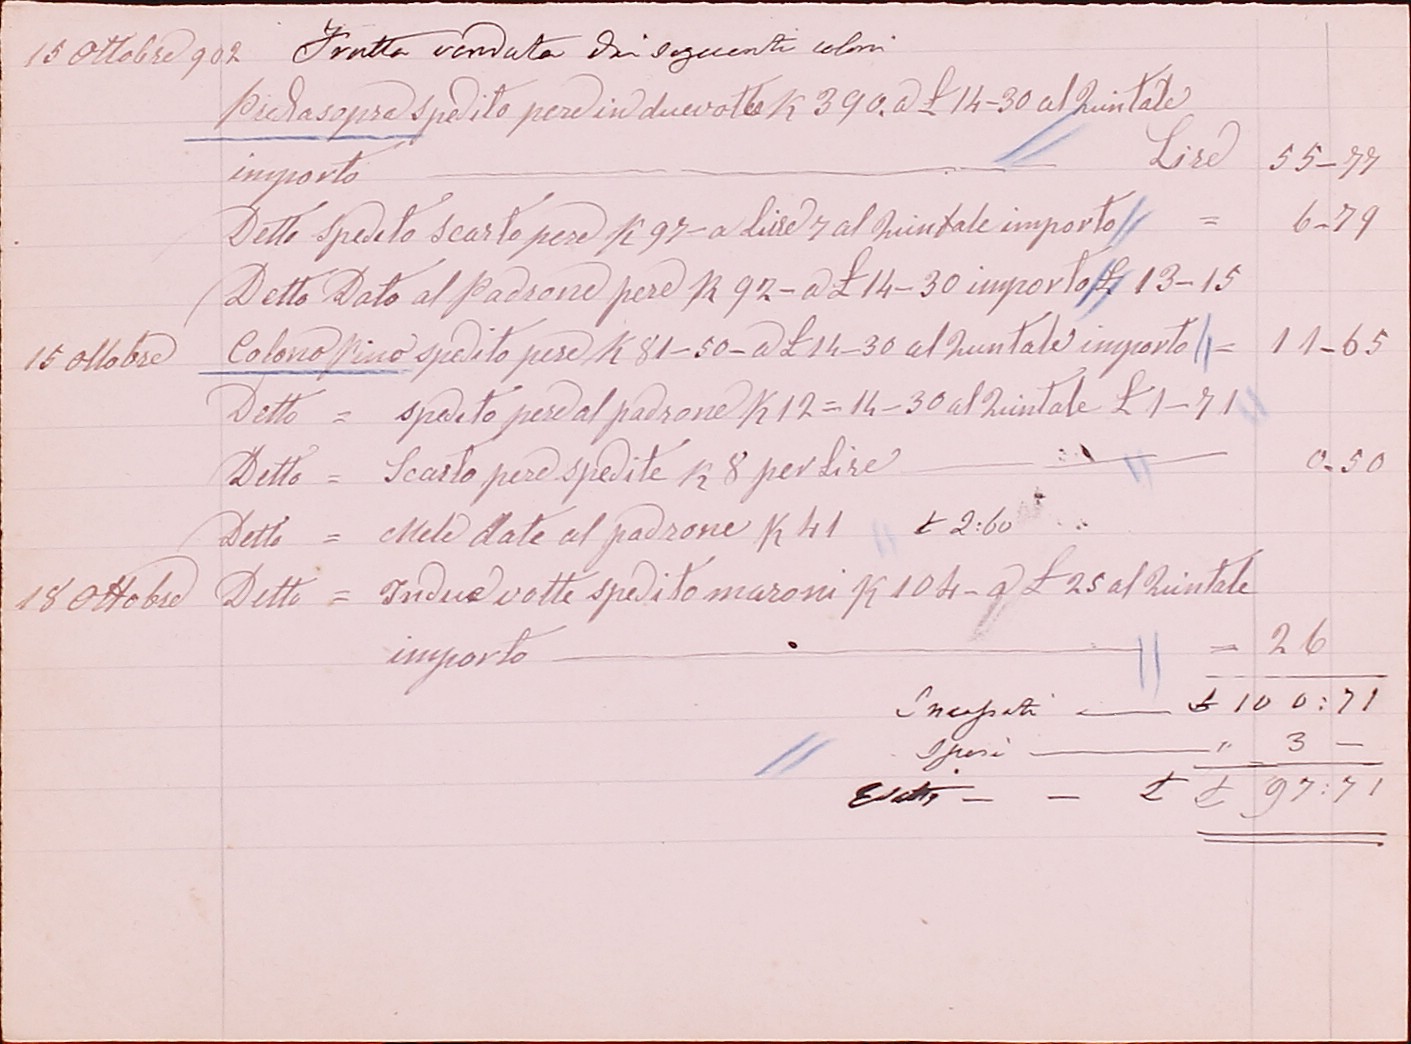 15 Ottobre 902 Frutta venduta dai seguenti coloni
Piedrasopra spedito pere in due volte K 390. a £ 14-30 al Quintale
importo Lire 55-77
Detto spedito scarto pere K 97- a Lire 7 al Quintale importo = 6-79
Detto Dato al Padrone pere K 92- a £ 14-30 importo £ 13-15
15 Ottobre Colono Pino spedito pere K 81-50- a £ 14-30 al Quintale importo = 11-65
Detto = spedito pere al padrone K 12 = 14-30 al Quintale £ 1-71
Detto = Scarto pere spedite K 8 per Lire 0-50
Detto = Mele date al padrone K 41 £ 2:60
18 Ottobre Detto = In due volte spedito maroni K 104- a £ 25 al Quintale
importo = 26
Incassati £ 100:71
Spesi " 3 -
Esatti - - £ £ 97:71